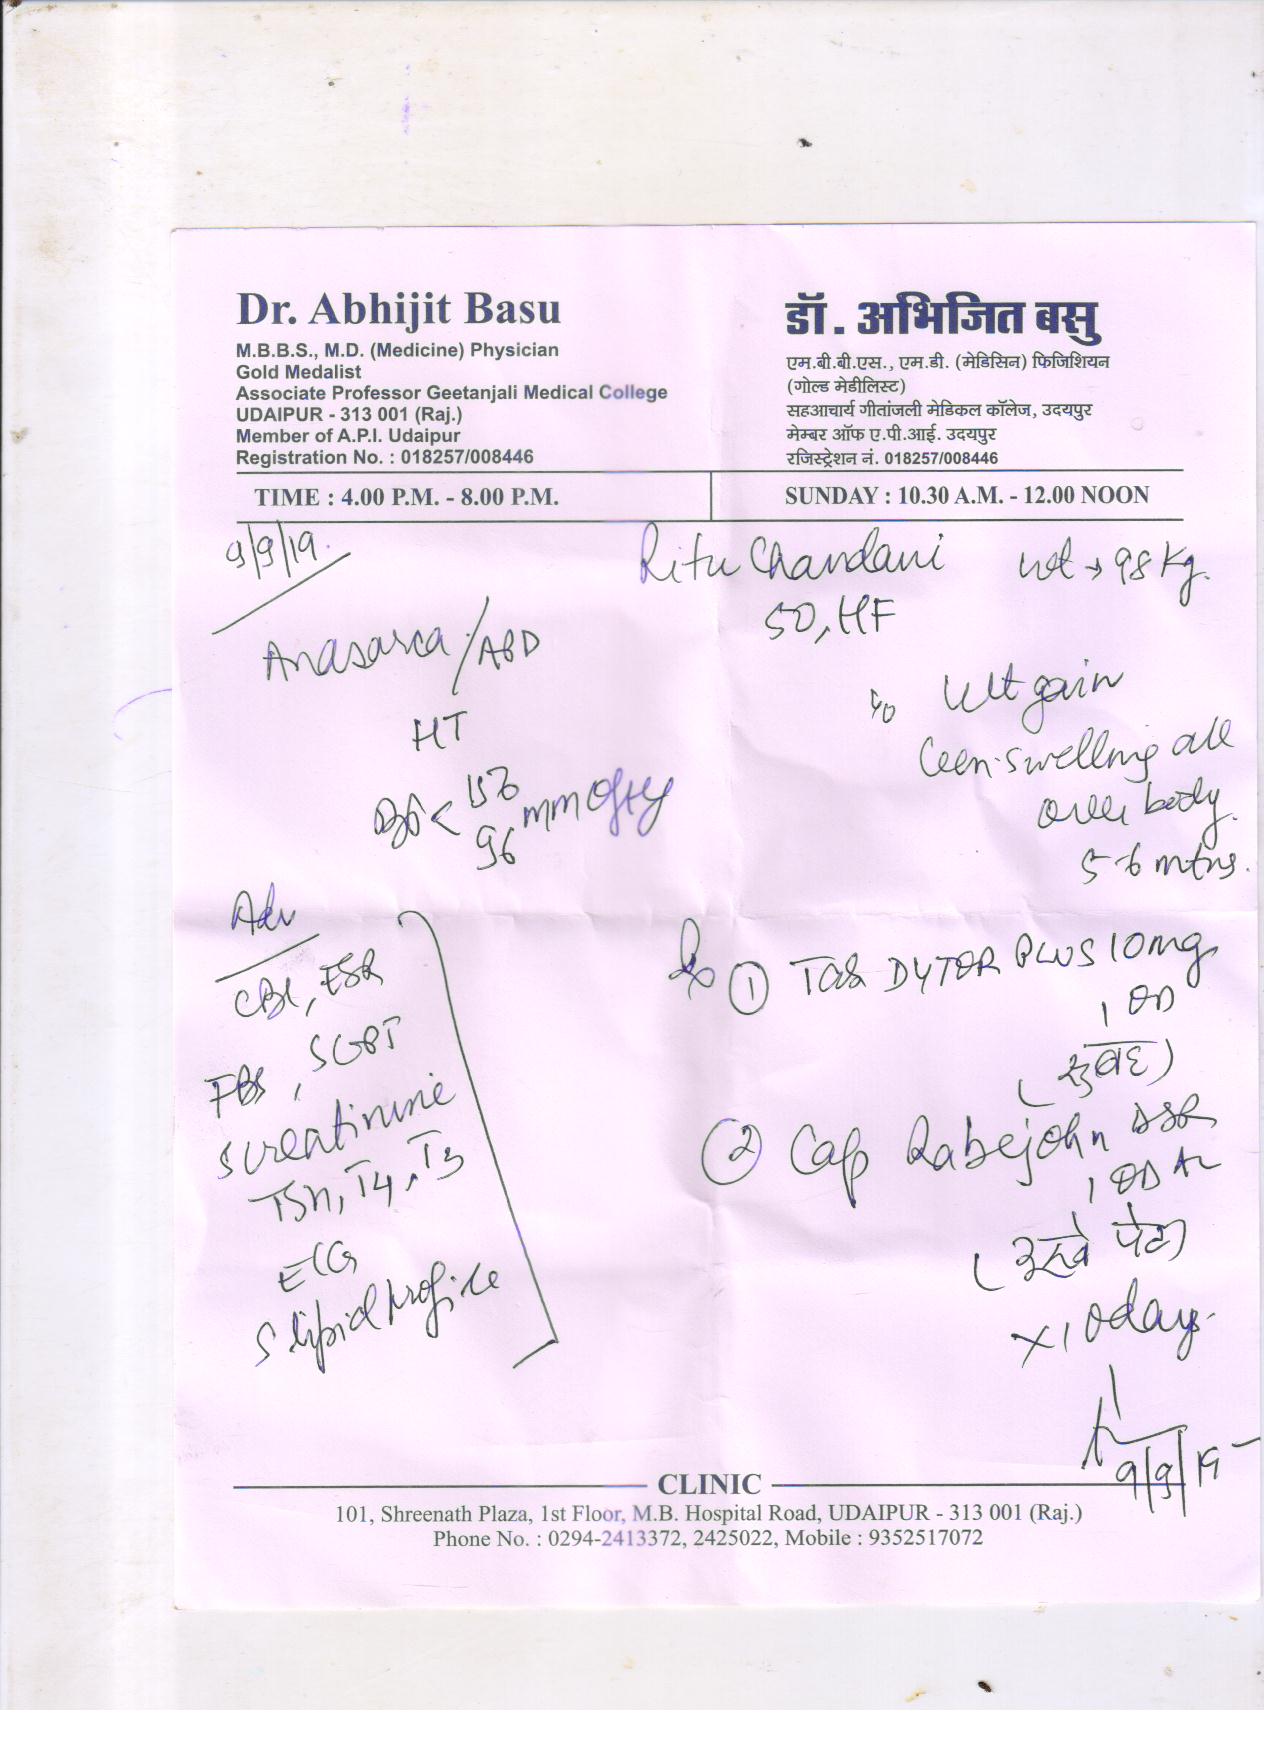 Dr. Abhijit Basu
M.B.B.S., M.D. (Medicine) Physician
Gold Medalist
Associate Professor Geetanjali Medical College
UDAIPUR - 313 001 (Raj.)
Member of A.P.I. Udaipur
Registration No. : 018257/008446
डॉ. अभिजित बसु
एम.बी.बी.एस., एम.डी. (मेडिसिन) फिजिशियन
(गोल्ड मेडीलिस्ट)
सहआचार्य गीतांजली मेडिकल कॉलेज, उदयपुर
मेम्बर ऑफ ए.पी.आई. उदयपुर
रजिस्ट्रेशन नं. 018257/008446
TIME : 4.00 P.M. - 8.00 P.M.
SUNDAY : 10.30 A.M. - 12.00 NOON
9/9/19.
Ritu Chandani
wt → 98 Kg.
50, HF
Anasarca / ABD
HT
mm of Hg
96
c/o Wt gain
swelling all
over body.
5-6 mths.
Adv
CBC, ESR
FBS, SGPT
S creatinine
TSH, T4, T3
ECG
S lipid profile
Rx
① Tab DYTOR PLUS 10mg
1 OD
(सुबह)
② Cap Rabejohn DSR
1 OD
पेट)
x 10 days.
9/9/19
CLINIC
101, Shreenath Plaza, 1st Floor, M.B. Hospital Road, UDAIPUR - 313 001 (Raj.)
Phone No. : 0294-2413372, 2425022, Mobile : 9352517072